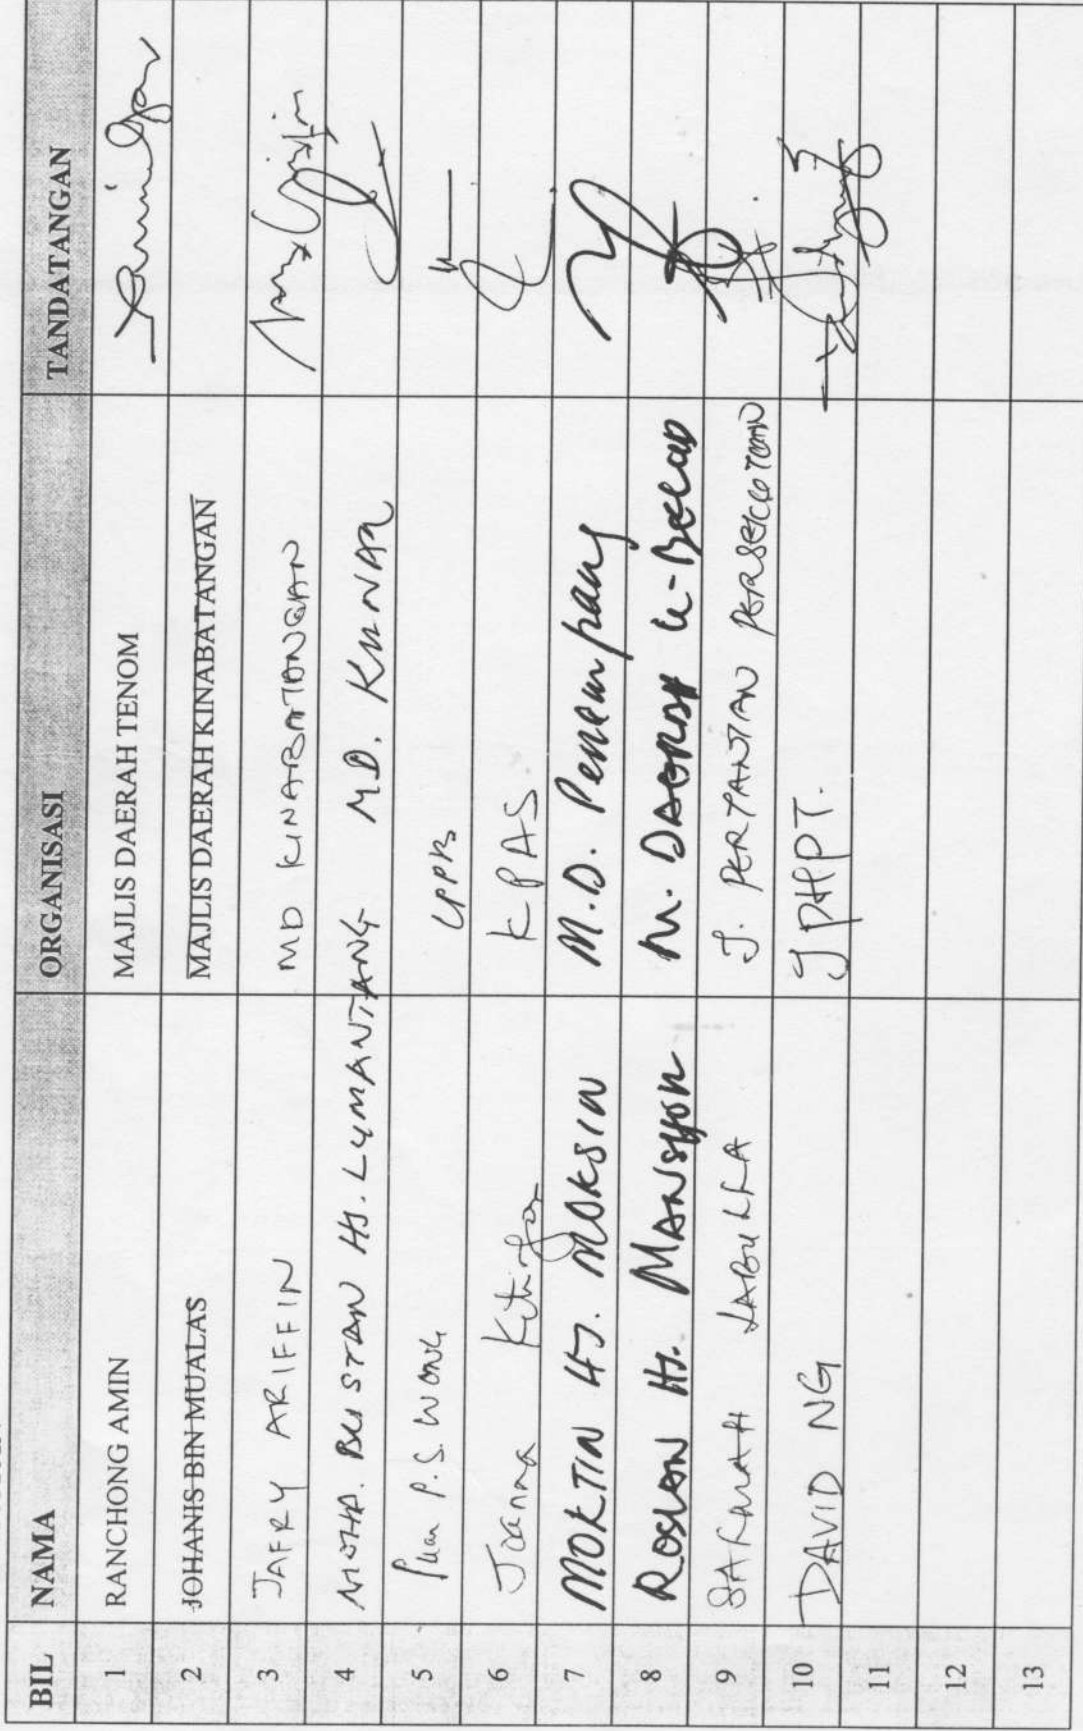 BIL NAMA ORGANISASI TANDATANGAN
1 RANCHONG AMIN MAJLIS DAERAH TENOM
2 JOHANIS BIN MUALAS MAJLIS DAERAH KINABATANGAN
3 JAFRY ARIFFIN MD KINABATANGAN
4 MOHD. BUSTAN HJ. LUMANTANG M.D. KUNAK
5 P.S. WONG UPPB
6 Joanna Kitingan KPAS
7 MOKTIN HJ. MOKSIN M.D. Penampang
8 ROSLAN HJ. MANSYOR M. DAERAH
9 SARMAH J. PERTANIAN
10 DAVID NG JPHPT.
11
12
13